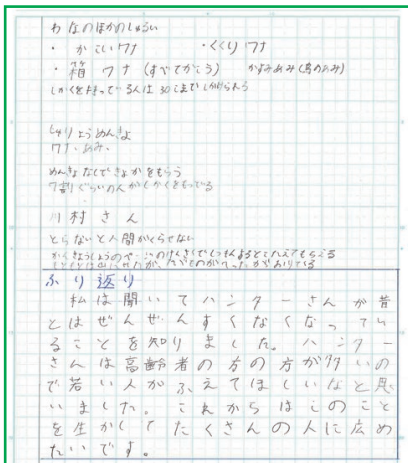 わなのほかのしゅるい
・かこいワナ ・くくりワナ
・箱ワナ(すべてがこう) かすみあみ(鳥のあみ)
しかくを持っている人は30こまでしかけられる
しゅりょうめんきょ
ワナ、あみ、
めんきょなしできょかをもらう
7割ぐらいの人がしかくをもっている
川村さん
とらないと人間がくらせない
ふり返り
私は聞いてハンターさんが昔
とはぜんぜんすくなくなってい
ることを知りました。ハンター
さんは高齢者の方の方が多いの
で若い人がふえてほしいなと思
いました。これからはこのこと
を生かしてたくさんの人に広め
たいです。